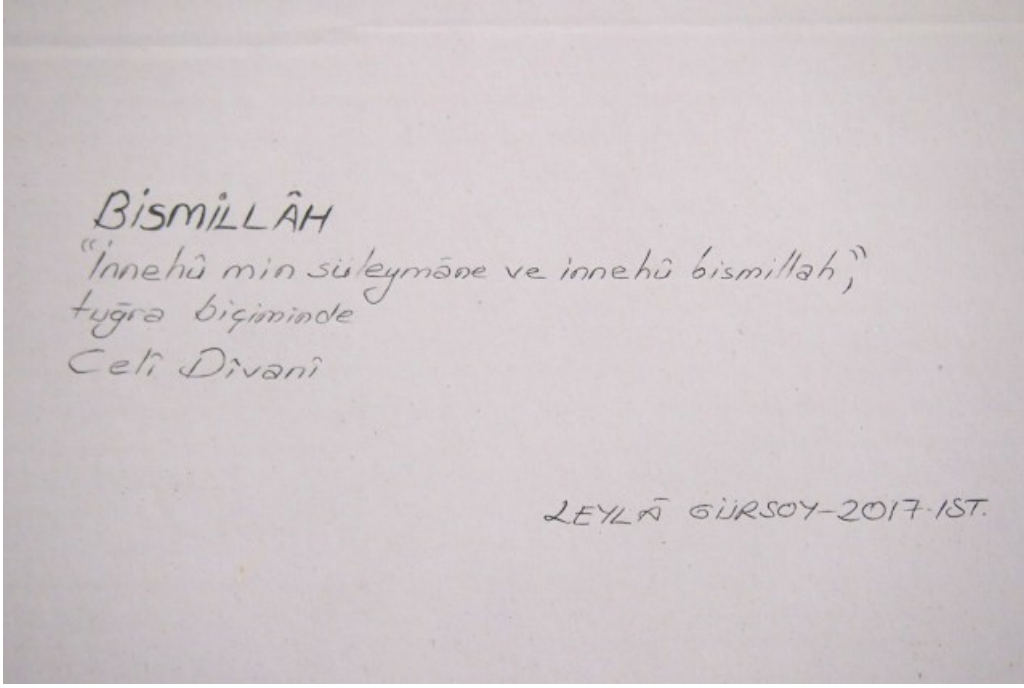 BİSMİLLÂH
"İnnehû min süleymâne ve innehû bismillah",
tuğra biçiminde
Celî Dîvanî
LEYLÂ GÜRSOY-2017-IST.